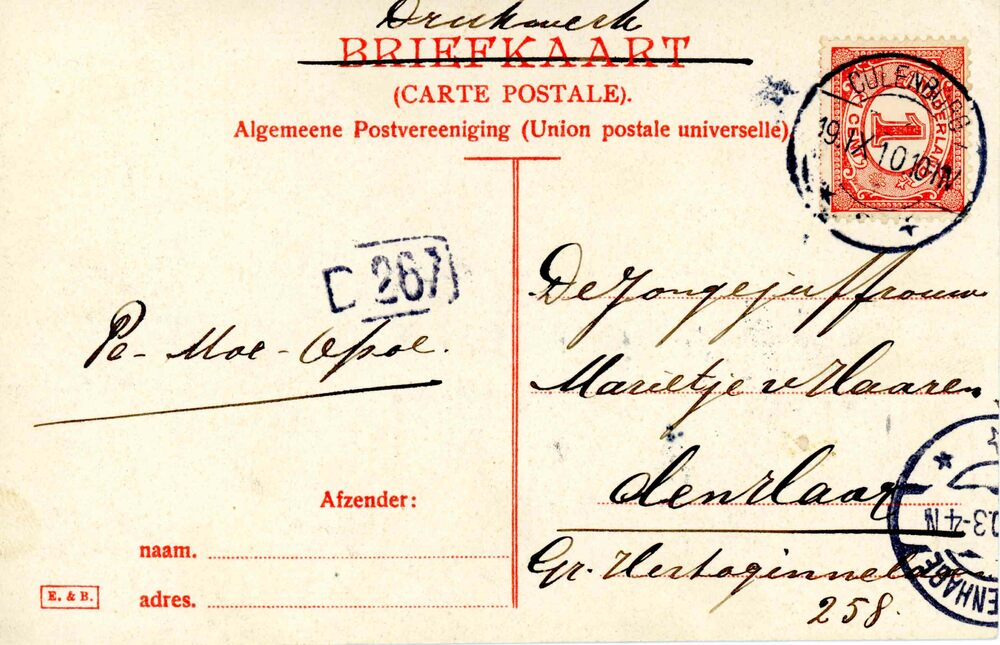 Drukwerk
BRIEFKAART
(CARTE POSTALE).
Algemeene Postvereeniging (Union postale universelle)
NEDERLAND
1
CENT
CULENBORG
19 IX 10 10-11V
267
De Jongejuffrouw
Marietje v Haaren
den Haag
Gr. Hertoginnelaan
258.
3-4 N
ENHAGE
Pa - Moe - Opoe.
Afzender:
naam.
adres.
E. & B.